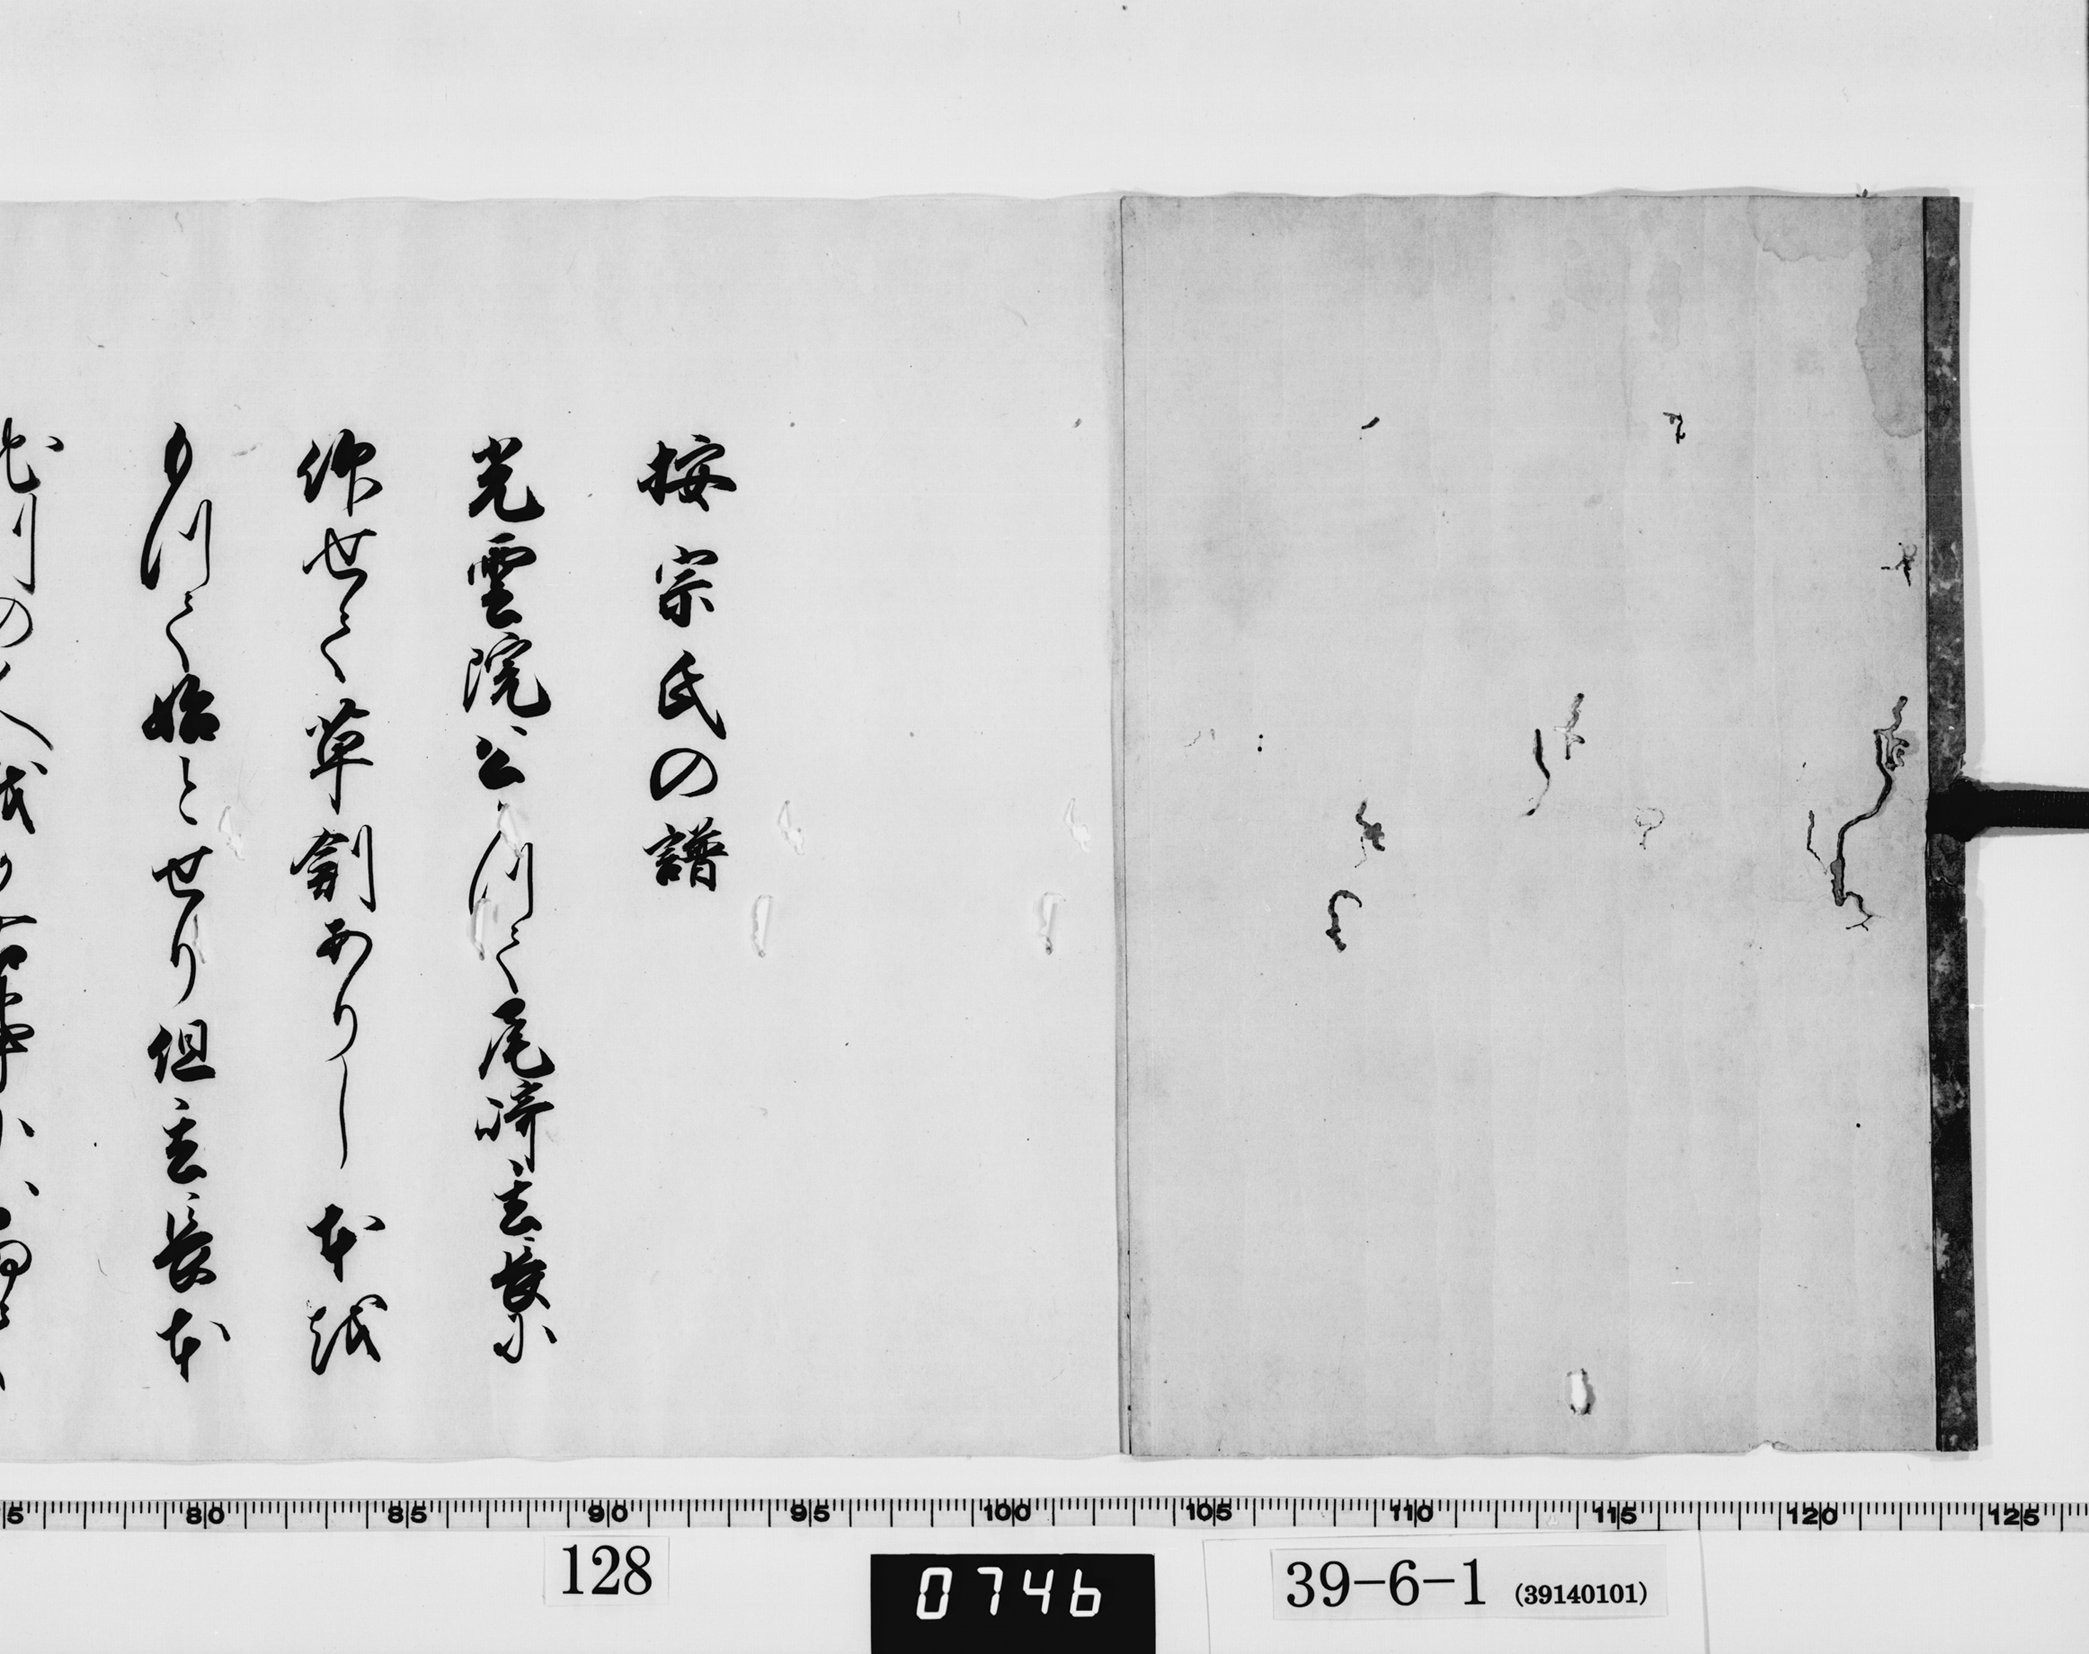 按宗氏の譜
光雲院公かつて尾崎玄長に
仰せて草創ありし本越
もつて始とせり但玄長本
75 80 85 90 95 100 105 110 115 120 125
128
0746
39-6-1 (39140101)